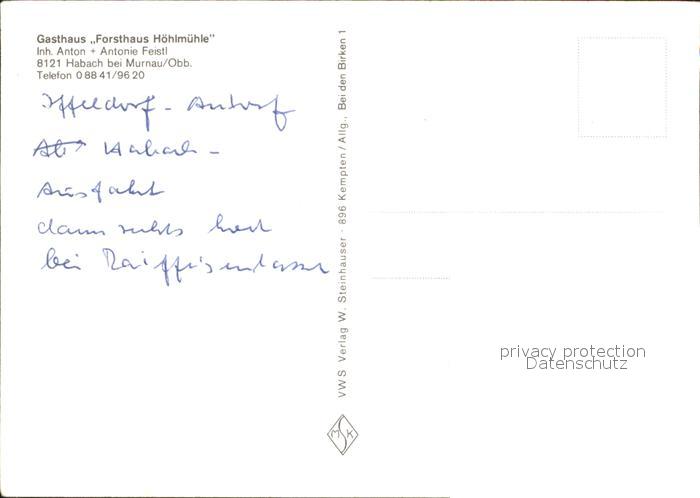 Gasthaus „Forsthaus Höhlmühle"
Inh. Anton + Antonie Feistl
8121 Habach bei Murnau/Obb.
Telefon 0 88 41/96 20
Iffeldorf - Antdorf
Habach -
Ausfahrt
dann rechts
bei Raiffeisenkasse
VWS Verlag W. Steinhauser · 896 Kempten/Allg., Bei den Birken 1
MSK
privacy protection
Datenschutz